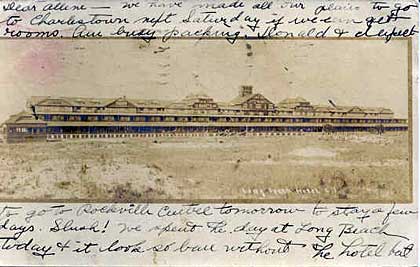 Dear Allene – we have made all our plans to go
to Charlestown next Saturday if we can get
rooms. Am busy packing. Donald & I expect
Long Beach Hotel
to go to Rockville Center tomorrow to stay a few
days. Slush! We spent the day at Long Beach
today & it look so bare without the hotel but